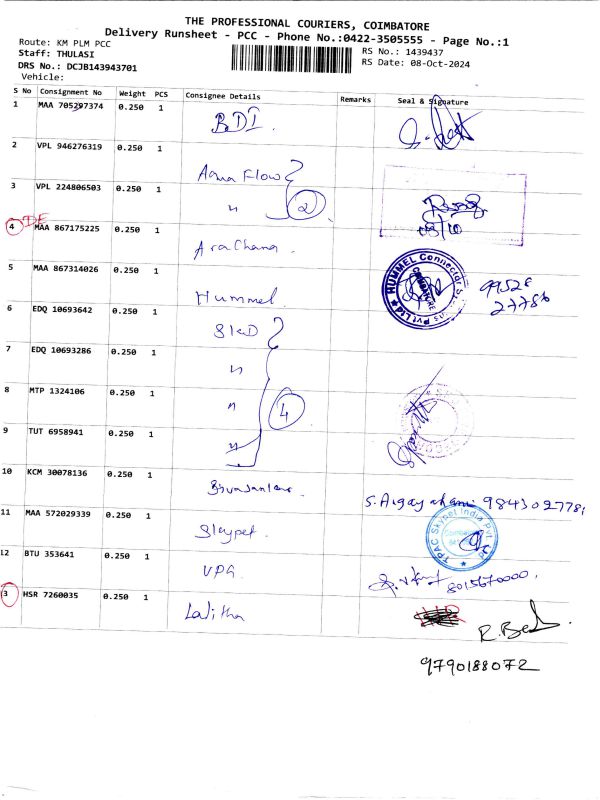 THE PROFESSIONAL COURIERS, COIMBATORE
Delivery Runsheet - PCC - Phone No.:0422-3505555 - Page No.:1
Route: KM PLM PCC
RS No.: 1439437
Staff: THULASI
RS Date: 08-Oct-2024
DRS No.: DCJB143943701
Vehicle:
S No Consignment No Weight PCS Consignee Details Remarks Seal & Signature
1 MAA 705297374 0.250 1 BDI.
2 VPL 946276319 0.250 1 Aqua Flow
3 VPL 224806503 0.250 1 " 2
08/10
4 DE MAA 867175225 0.250 1
5 MAA 867314026 0.250 1 Hummel.
HUMMEL Connector Systems Pvt Ltd
COIMBATORE
99528
27786
6 EDQ 10693642 0.250 1
7 EDQ 10693286 0.250 1 "
8 MTP 1324106 0.250 1 " 4
9 TUT 6958941 0.250 1 "
10 KCM 30078136 0.250 1
11 MAA 572029339 0.250 1 Skypet
TPAC Skypet India Pvt Ltd
12 BTU 353641 0.250 1 VPG
8015670000.
13 HSR 7260035 0.250 1 Lalitha
9790188072